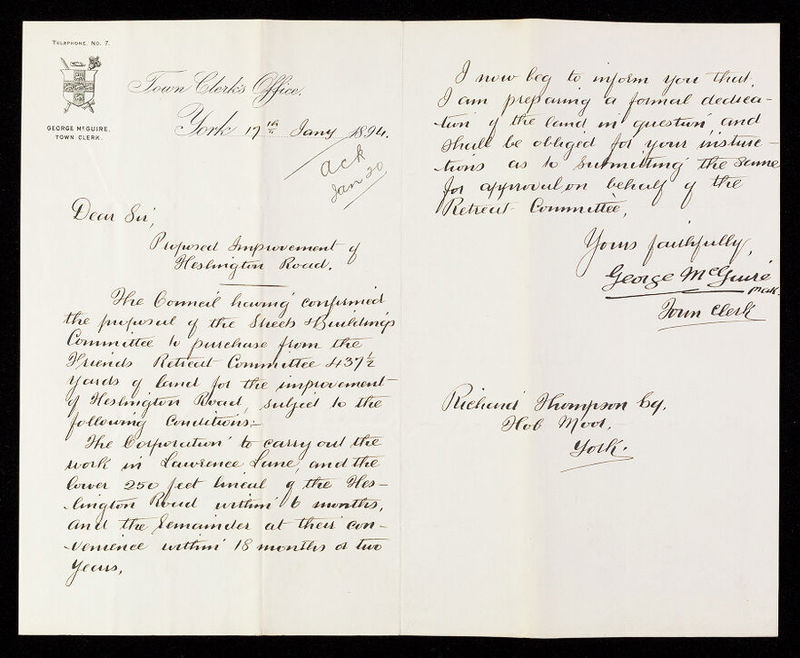 TELEPHONE. NO. 7.
GEORGE McGUIRE,
TOWN CLERK.
Town Clerk's Office,
York 17th Jany 1894.
ack
Jan 20
Dear Sir,
Proposed Improvement of
Heslington Road.
The Council having confirmed
the proposal of the Streets & Buildings
Committee to purchase from the
Friends Retreat Committee 437½
yards of land for the improvement
of Heslington Road, subject to the
following conditions:-
The Corporation to carry out the
work in Lawrence Lane, and the
lower 250 feet lineal of the Hes-
-lington Road within 6 months,
and the remainder at their con-
-venience within 18 months or two
years,
I now beg to inform you that
I am preparing a formal dedica-
-tion of the land in question, and
shall be obliged for your instruc-
-tions as to submitting the same
for approval on behalf of the
Retreat Committee,
Yours faithfully,
George McGuire
Town Clerk
Richard Thompson Esq.
Hob Moor,
York.